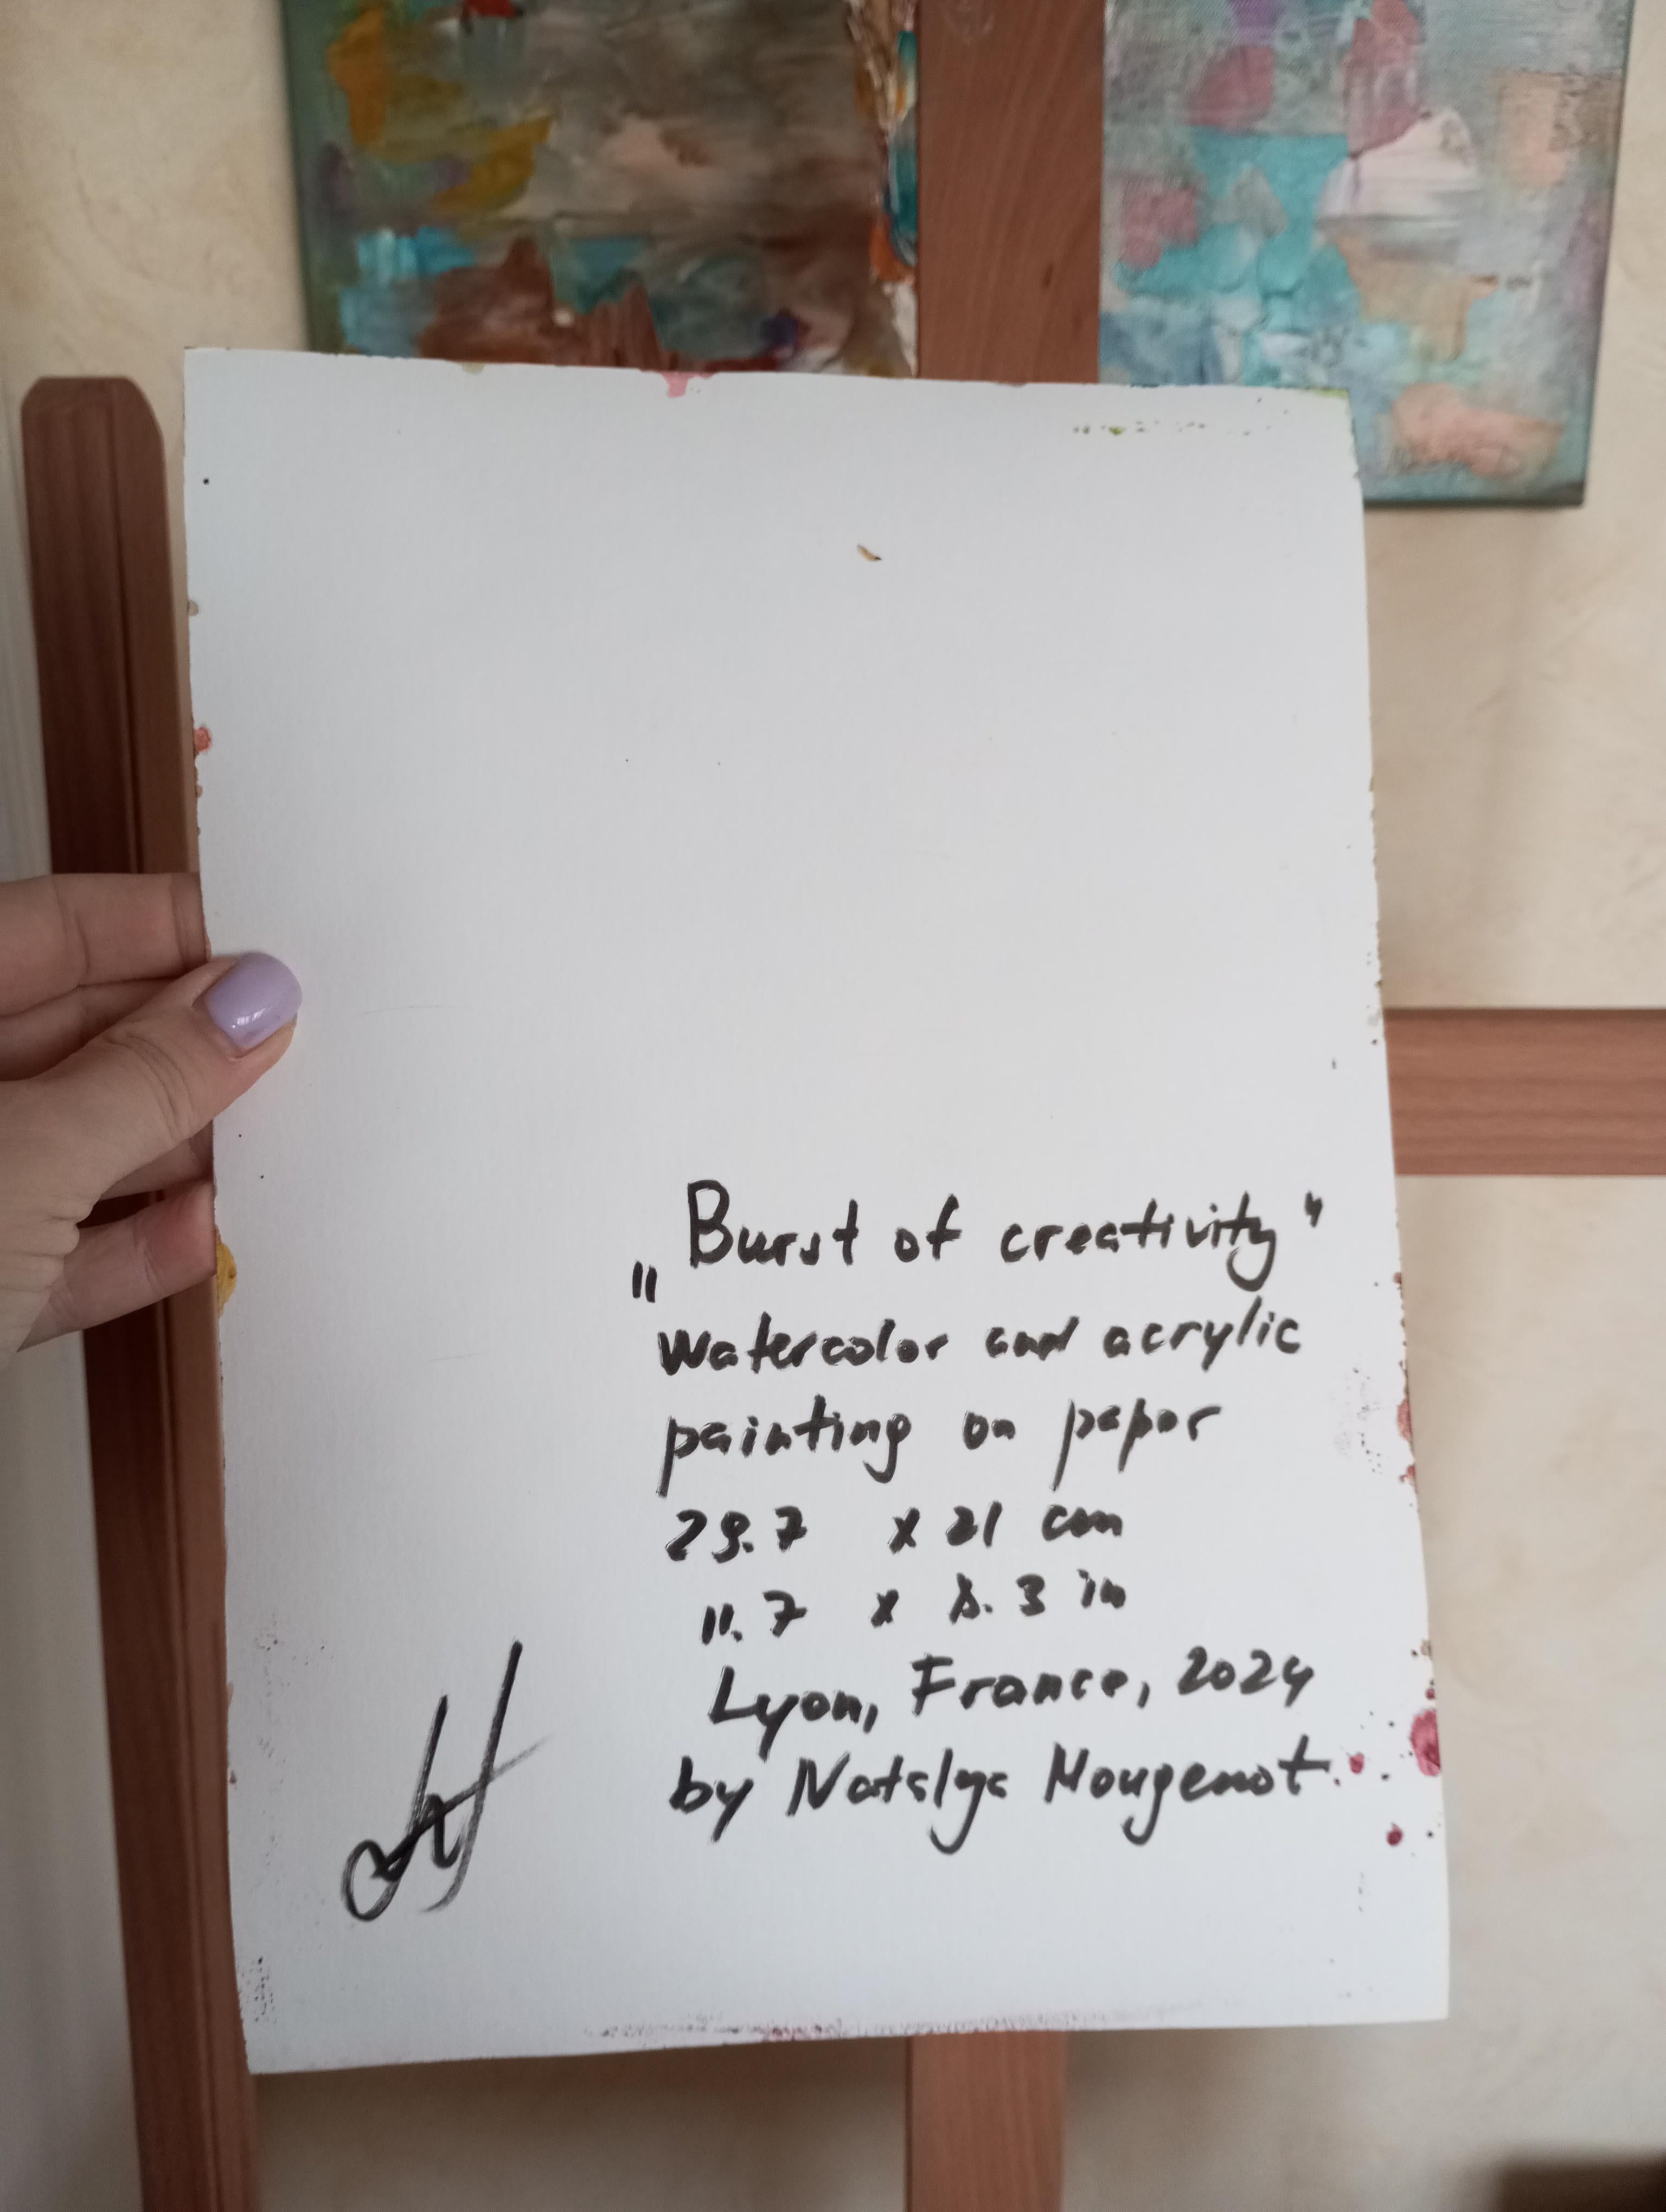 „Burst of creativity"
watercolor and acrylic
painting on paper
29.7 x 21 cm
11.7 x 8.3 in
Lyon, France, 2024
by Natalya Mougenot